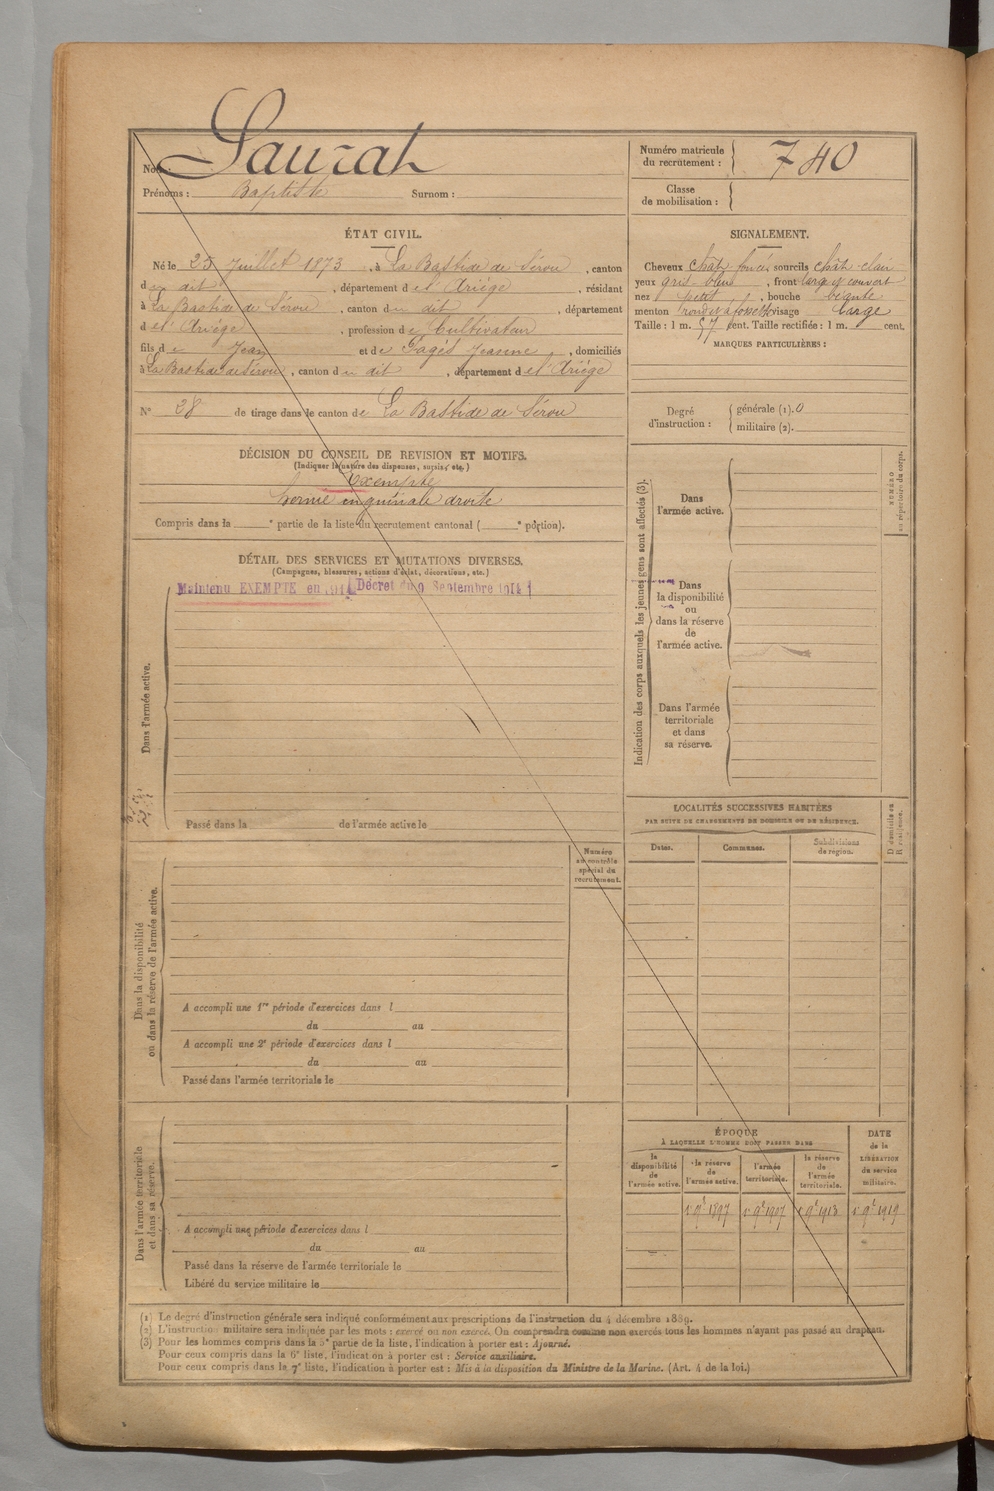 Nom : Laurat
Prénoms : Baptiste Surnom :
Numéro matricule du recrutement : 740
Classe de mobilisation :
ÉTAT CIVIL.
Né le 25 Juillet 1873, à La Bastide de Sérou, canton
du dit, département de l'Ariège, résidant
à La Bastide de Sérou, canton du dit, département
de l'Ariège, profession de Cultivateur
fils de Jean et de Pagès Jeanne, domiciliés
à La Bastide de Sérou, canton du dit, département de l'Ariège
N° 28 de tirage dans le canton de La Bastide de Sérou
SIGNALEMENT.
Cheveux chât. foncés sourcils chât. clair
yeux gris bleu, front large et couvert
nez petit, bouche béante
menton rond et à fossette visage large
Taille : 1 m. 57 cent. Taille rectifiée : 1 m. cent.
MARQUES PARTICULIÈRES :
Degré d'instruction : générale (1). 0
militaire (2).
DÉCISION DU CONSEIL DE REVISION ET MOTIFS.
(Indiquer la nature des dispenses, sursis, etc.)
Exempté
hernie inguinale droite
Compris dans la e partie de la liste du recrutement cantonal ( e portion).
DÉTAIL DES SERVICES ET MUTATIONS DIVERSES.
(Campagnes, blessures, actions d'éclat, décorations, etc.)
Maintenu EXEMPTE en 1914 Décret du 9 Septembre 1914
Dans l'armée active.
Passé dans la de l'armée active le
Indication des corps auxquels les jeunes gens sont affectés (3).
NUMÉRO au répertoire du corps.
Dans l'armée active.
Dans la disponibilité ou dans la réserve de l'armée active.
Dans l'armée territoriale et dans sa réserve.
LOCALITÉS SUCCESSIVES HABITÉES
PAR SUITE DE CHANGEMENTS DE DOMICILE OU DE RÉSIDENCE.
Dates. Communes. Subdivisions de région. D domicile ou R résidence.
Numéro au contrôle spécial du recrutement.
Dans la disponibilité ou dans la réserve de l'armée active.
A accompli une 1re période d'exercices dans l
du au
A accompli une 2e période d'exercices dans l
du au
Passé dans l'armée territoriale le
Dans l'armée territoriale et dans sa réserve.
A accompli une période d'exercices dans l
du au
Passé dans la réserve de l'armée territoriale le
Libéré du service militaire le
ÉPOQUE
À LAQUELLE L'HOMME DOIT PASSER DANS
la disponibilité de l'armée active. la réserve de l'armée active. l'armée territoriale. la réserve de l'armée territoriale.
DATE de la LIBÉRATION du service militaire.
1er 9bre 1897 1er 9bre 1907 1er 9bre 1913 1er 9bre 1919
(1) Le degré d'instruction générale sera indiqué conformément aux prescriptions de l'instruction du 4 décembre 1889.
(2) L'instruction militaire sera indiquée par les mots : exercé ou non exercé. On comprendra comme non exercés tous les hommes n'ayant pas passé au drapeau.
(3) Pour les hommes compris dans la 5e partie de la liste, l'indication à porter est : Ajourné.
Pour ceux compris dans la 6e liste, l'indication à porter est : Service auxiliaire.
Pour ceux compris dans la 7e liste, l'indication à porter est : Mis à la disposition du Ministre de la Marine. (Art. 4 de la loi.)